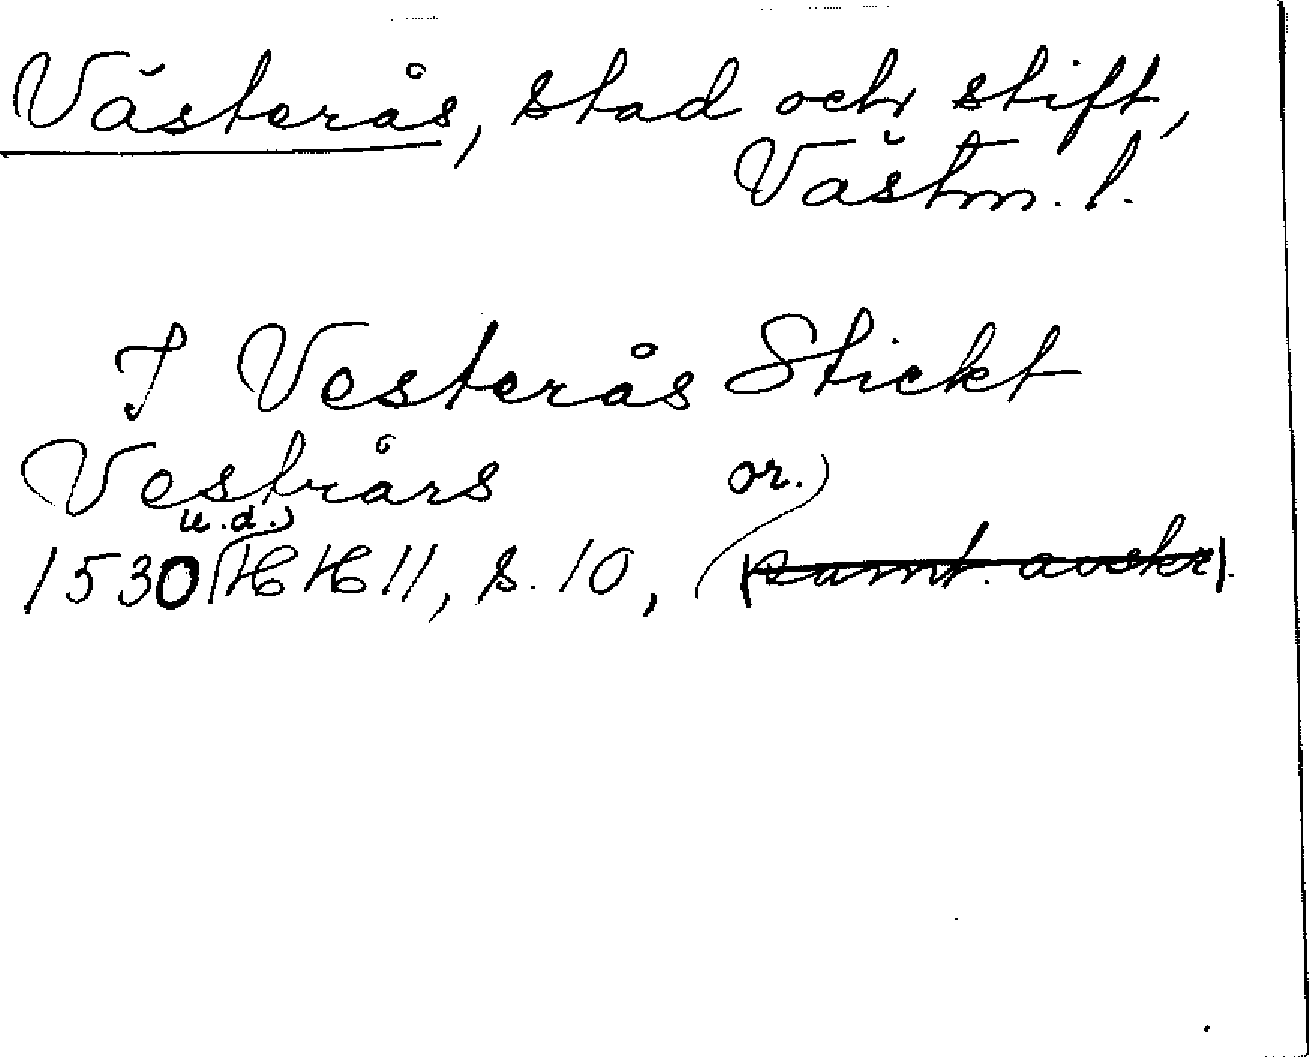 Västerås, stad och stift,
Västm. l.
I Vesterås Stickt
Vestrårs or.)
u.d.)
1530 HH 11, s. 10, (samt. avskr).